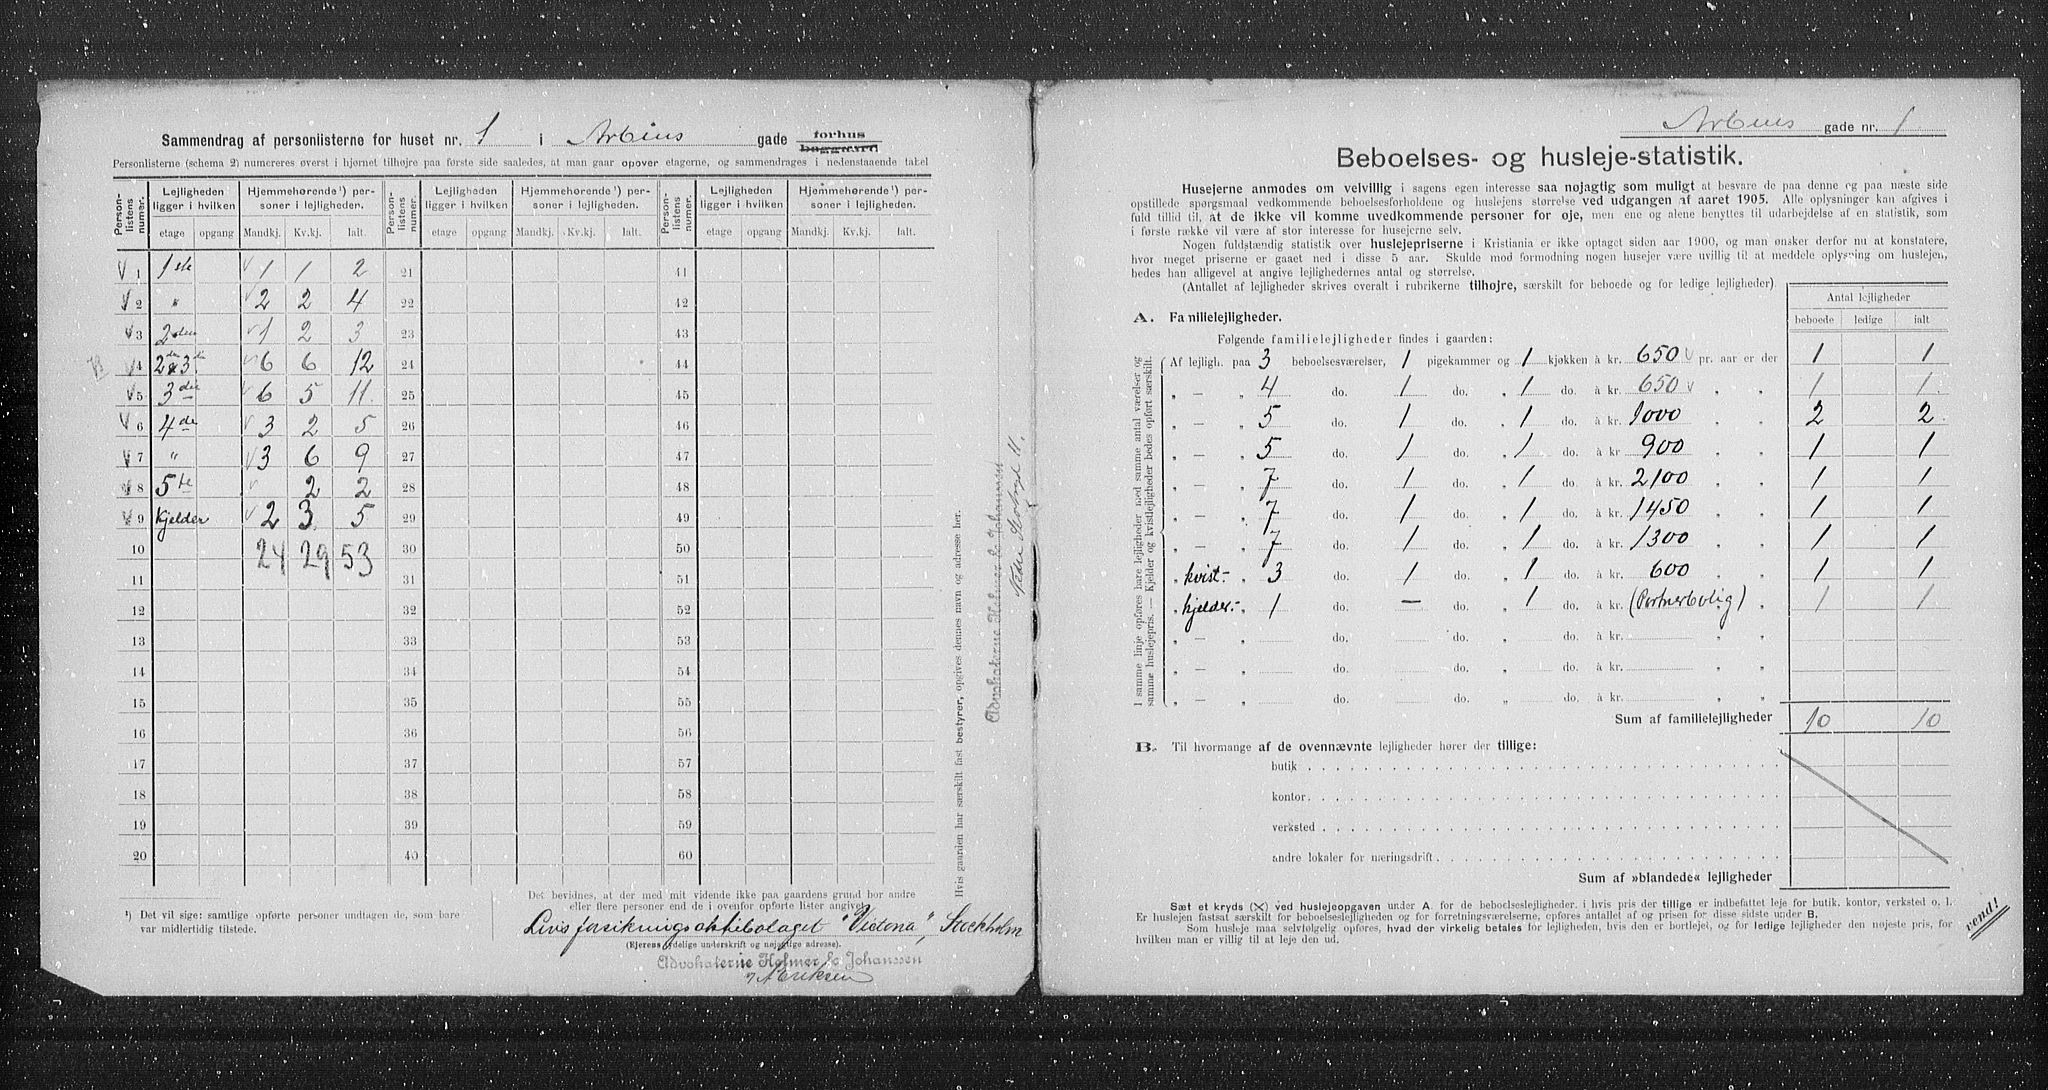 Sammendrag af personlisterne for huset nr. 1 i Arbins gade forhus baggaard
Personlisterne (schema 2) numereres øverst i hjørnet tilhøjre paa første side saaledes, at man gaar opover etagerne, og sammendrages i nedenstaaende tabel
Person-listens numer. Lejligheden ligger i hvilken Hjemmehørende¹) personer i lejligheden. Person-listens numer. Lejligheden ligger i hvilken Hjemmehørende¹) personer i lejligheden. Person-listens numer. Lejligheden ligger i hvilken Hjemmehørende¹) personer i lejligheden.
etage opgang Mandkj. Kv.kj. Ialt. etage opgang Mandkj. Kv.kj. Ialt. etage opgang Mandkj. Kv.kj. Ialt.
1 1ste 1 1 2 21 41
2 " 2 2 4 22 42
3 2den 1 2 3 23 43
4 2den & 3die 6 6 12 24 44
5 3die 6 5 11 25 45
6 4de 3 2 5 26 46
7 " 3 6 9 27 47
8 5te 2 2 28 48
9 Kjelder 2 3 5 29 49
10 24 29 53 30 50
11 31 51
12 32 52
13 33 53
14 34 54
15 35 55
16 36 56
17 37 57
18 38 58
19 39 59
20 40 60
¹) Det vil sige: samtlige opførte personer undtagen de, som bare
var midlertidig tilstede.
Det bevidnes, at der med mit vidende ikke paa gaardens grund bor andre
eller flere personer end de i ovenfor opførte lister angivne.
Livsforsikringsaktiebolaget "Victoria", Stockholm
(Ejerens tydelige underskrift og nøjagtige adresse).
Advokaterne Holmer & Johanssen
A Eriksen
Hvis gaarden har særskilt fast bestyrer, opgives dennes navn og adresse her.
Advokaterne Holmer & Johanssen
Nedre Slotsgd 11.
Arbins gade nr. 1
Beboelses- og husleje-statistik.
Husejerne anmodes om velvillig i sagens egen interesse saa nøjagtig som muligt at besvare de paa denne og paa næste side
opstillede spørgsmaal vedkommende beboelsesforholdene og huslejens størrelse ved udgangen af aaret 1905. Alle oplysninger kan afgives i
fuld tillid til, at de ikke vil komme uvedkommende personer for øje, men ene og alene benyttes til udarbejdelse af en statistik, som
i første række vil være af stor interesse for husejerne selv.
Nogen fuldstændig statistik over huslejepriserne i Kristiania er ikke optaget siden aar 1900, og man ønsker derfor nu at konstatere,
hvor meget priserne er gaaet ned i disse 5 aar. Skulde mod formodning nogen husejer være uvillig til at meddele oplysning om huslejen,
bedes han alligevel at angive lejlighedernes antal og størrelse.
(Antallet af lejligheder skrives overalt i rubrikerne tilhøjre, særskilt for beboede og for ledige lejligheder)
Antal lejligheder
beboede ledige ialt
A. Familielejligheder.
Følgende familielejligheder findes i gaarden:
I samme linje opføres bare lejligheder med samme antal værelser og
samme huslejepris. — Kjelder og kvistlejligheder bedes opført særskilt.
Af lejligh. paa 3 beboelsesværelser, 1 pigekammer og 1 kjøkken à kr. 650 pr. aar er der 1 1
„ — „ 4 do. 1 do. „ 1 do. à kr. 650 „ „ 1 1
„ — „ 5 do. 1 do. „ 1 do. à kr. 1000 „ „ 2 2
„ — „ 5 do. 1 do. „ 1 do. à kr 900 „ „ 1 1
„ — „ 7 do. 1 do. „ 1 do. à kr. 2100 „ „ 1 1
„ — „ 7 do. 1 do. „ 1 do. à kr. 1450 „ „ 1 1
„ — „ 7 do. 1 do. „ 1 do. à kr. 1300 „ „ 1 1
„ kvist- „ 3 do. 1 do. „ 1 do. à kr. 600 „ „ 1 1
„ kjelder- „ 1 do. — do. „ 1 do. à kr. (Portnerbolig) „ 1 1
„ — „ do. do. „ do. à kr. „ „
„ — „ do. do. „ do. à kr. „ „
„ — „ do. do. „ do. à kr. „ „
Sum af familielejligheder 10 10
B. Til hvormange af de ovennævnte lejligheder hører der tillige:
butik
kontor
verksted
andre lokaler for næringsdrift
Sum af »blandede« lejligheder
Sæt et kryds (×) ved huslejeopgaven under A. for de beboelseslejligheder, i hvis pris der tillige er indbefattet leje for butik, kontor, verksted o. l.
Er huslejen fastsat særskilt for beboelseslejligheden og for forretningsværelserne, opføres antallet af og prisen for disse sidste under B.
Som husleje maa selvfølgelig opføres, hvad der virkelig betales for lejligheden, hvis den er bortlejet, og for ledige lejligheder den nøjeste pris, for
hvilken man er villig til at leje den ud.
vend!